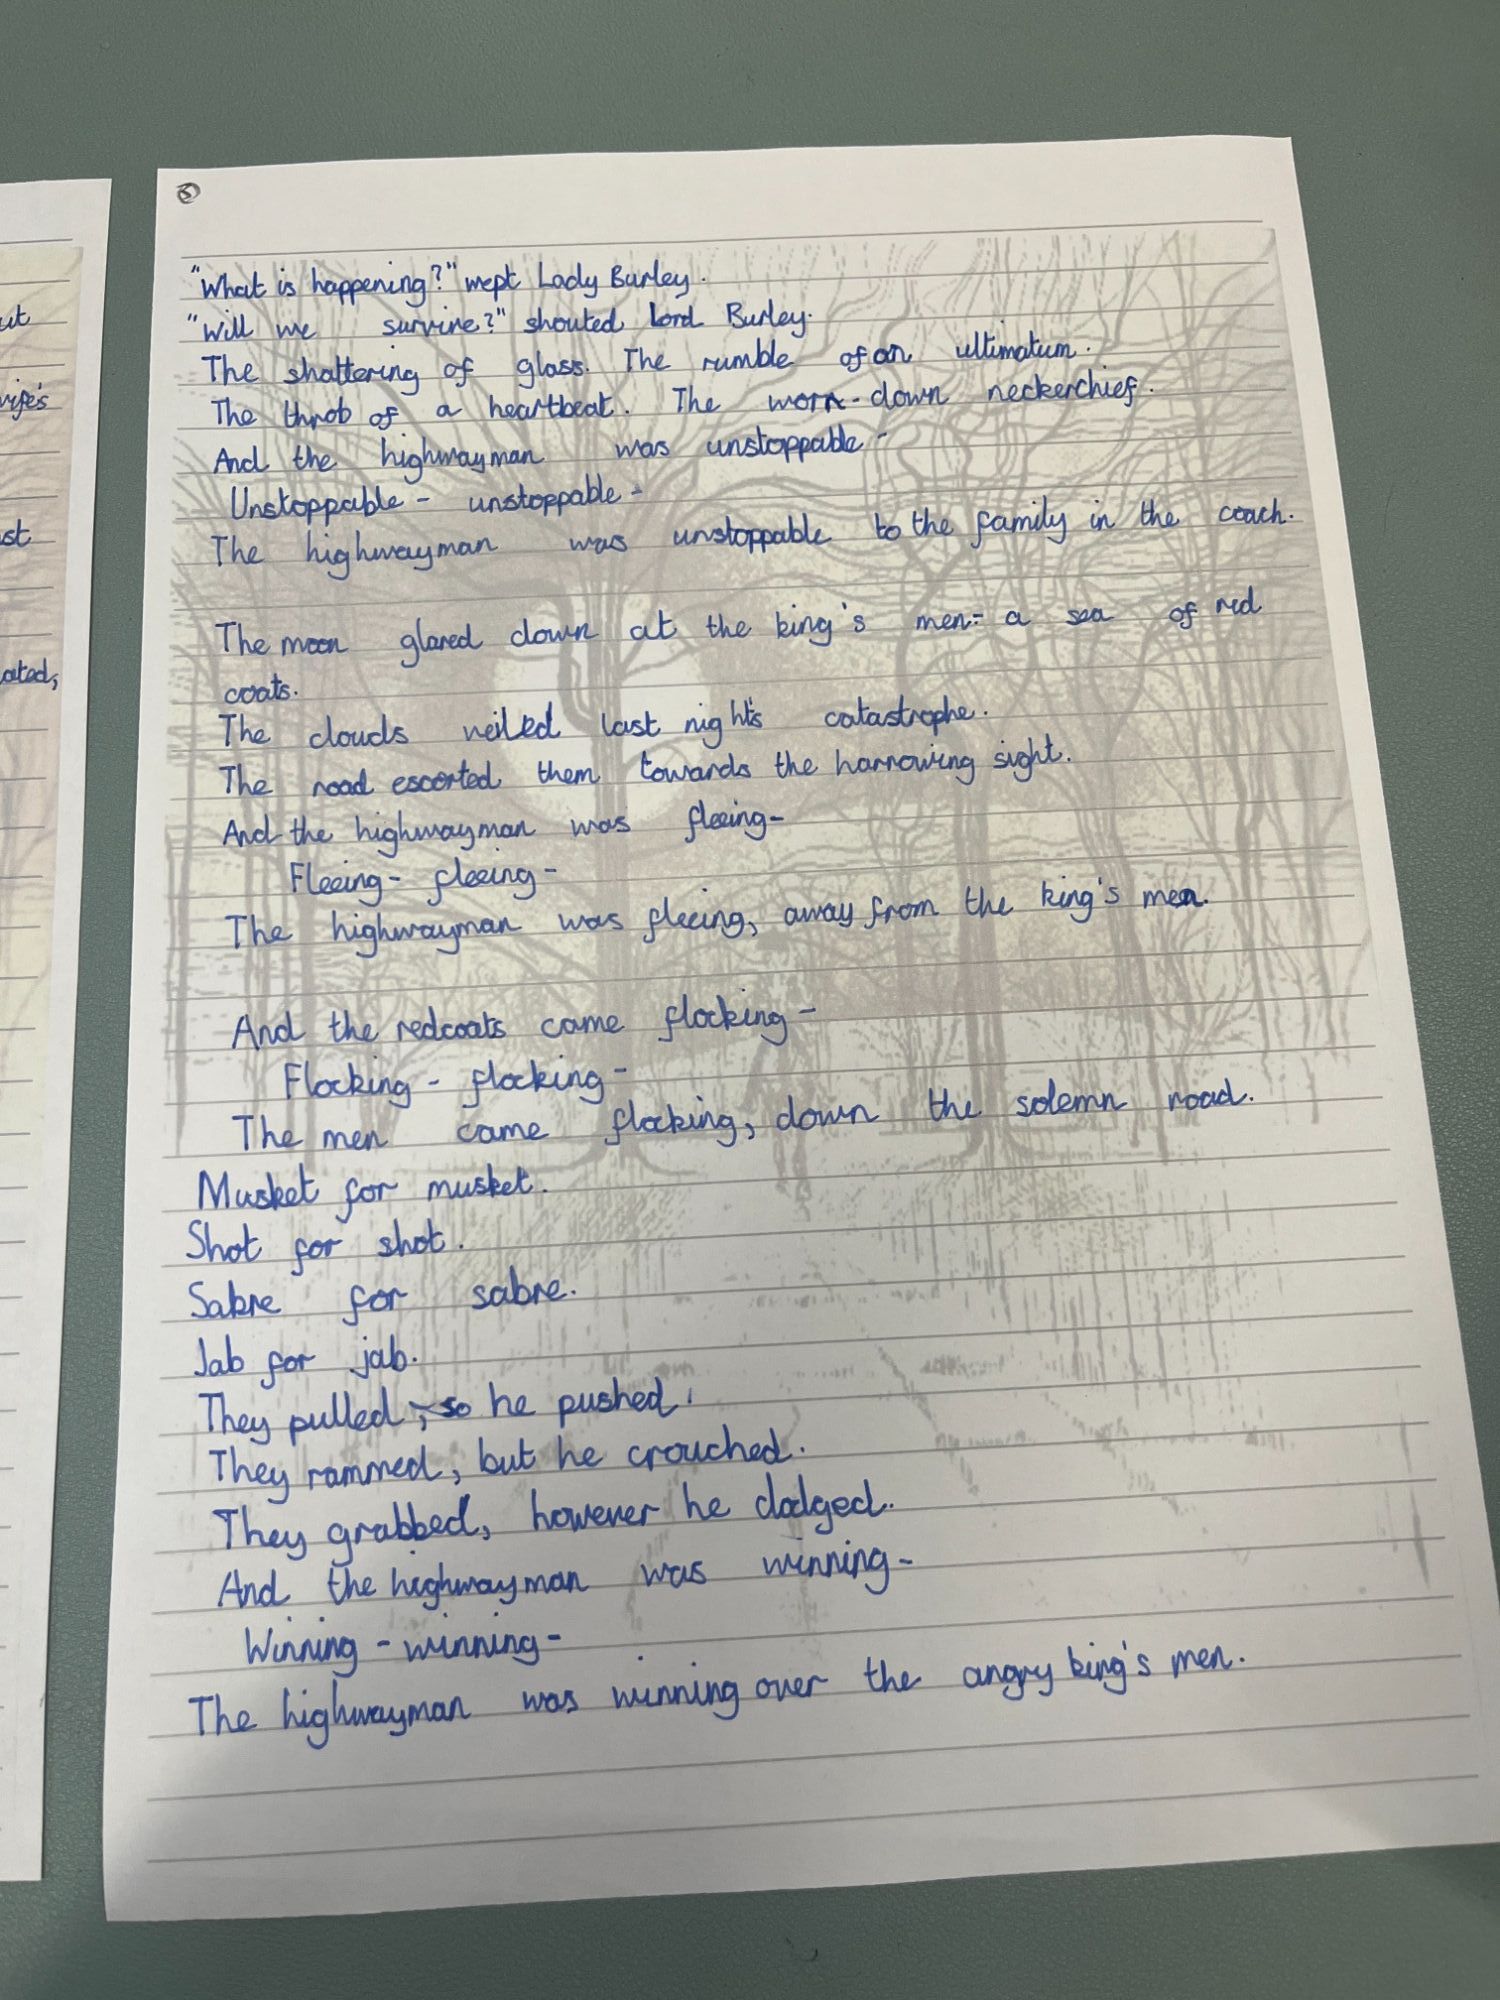 ut
wife's
st
ated,
"What is happening?" wept Lady Burley.
"Will we survive?" shouted Lord Burley.
The shattering of glass. The rumble of an ultimatum.
The throb of a heartbeat. The worn-down neckerchief.
And the highwayman was unstoppable-
Unstoppable - unstoppable-
The highwayman was unstoppable to the family in the coach.
The moon glared down at the king's men- a sea of red
coats.
The clouds veiled last night's catastrophe.
The road escorted them towards the harrowing sight.
And the highwayman was fleeing-
Fleeing- fleeing-
The highwayman was fleeing, away from the king's men.
And the redcoats came flocking-
Flocking - flocking-
The men came flocking, down the solemn road.
Musket for musket.
Shot for shot.
Sabre for sabre.
Jab for jab.
They pulled, so he pushed.
They rammed, but he crouched.
They grabbed, however he dodged.
And the highwayman was winning-
Winning - winning-
The highwayman was winning over the angry king's men.